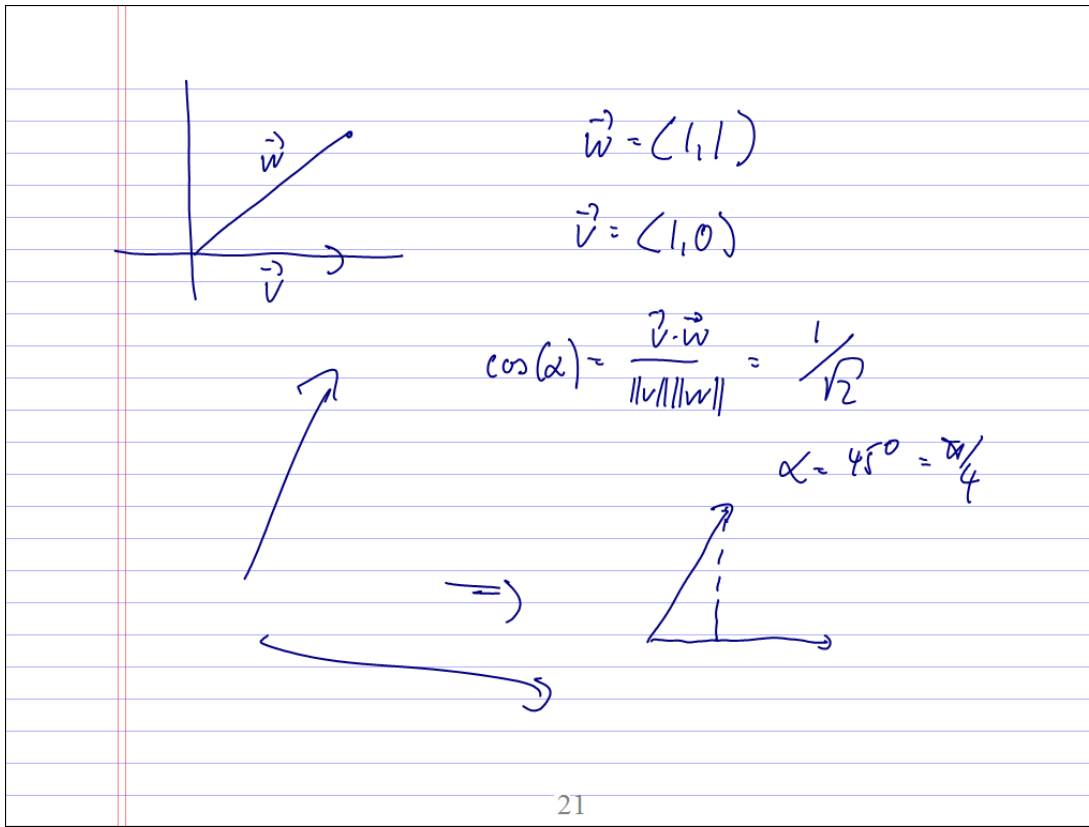 w⃗ = (1,1)
w⃗
v⃗ = (1,0)
v⃗
cos(α) = v⃗·w⃗ / ||v|| ||w|| = 1/√2
α = 45° = π/4
⇒
21